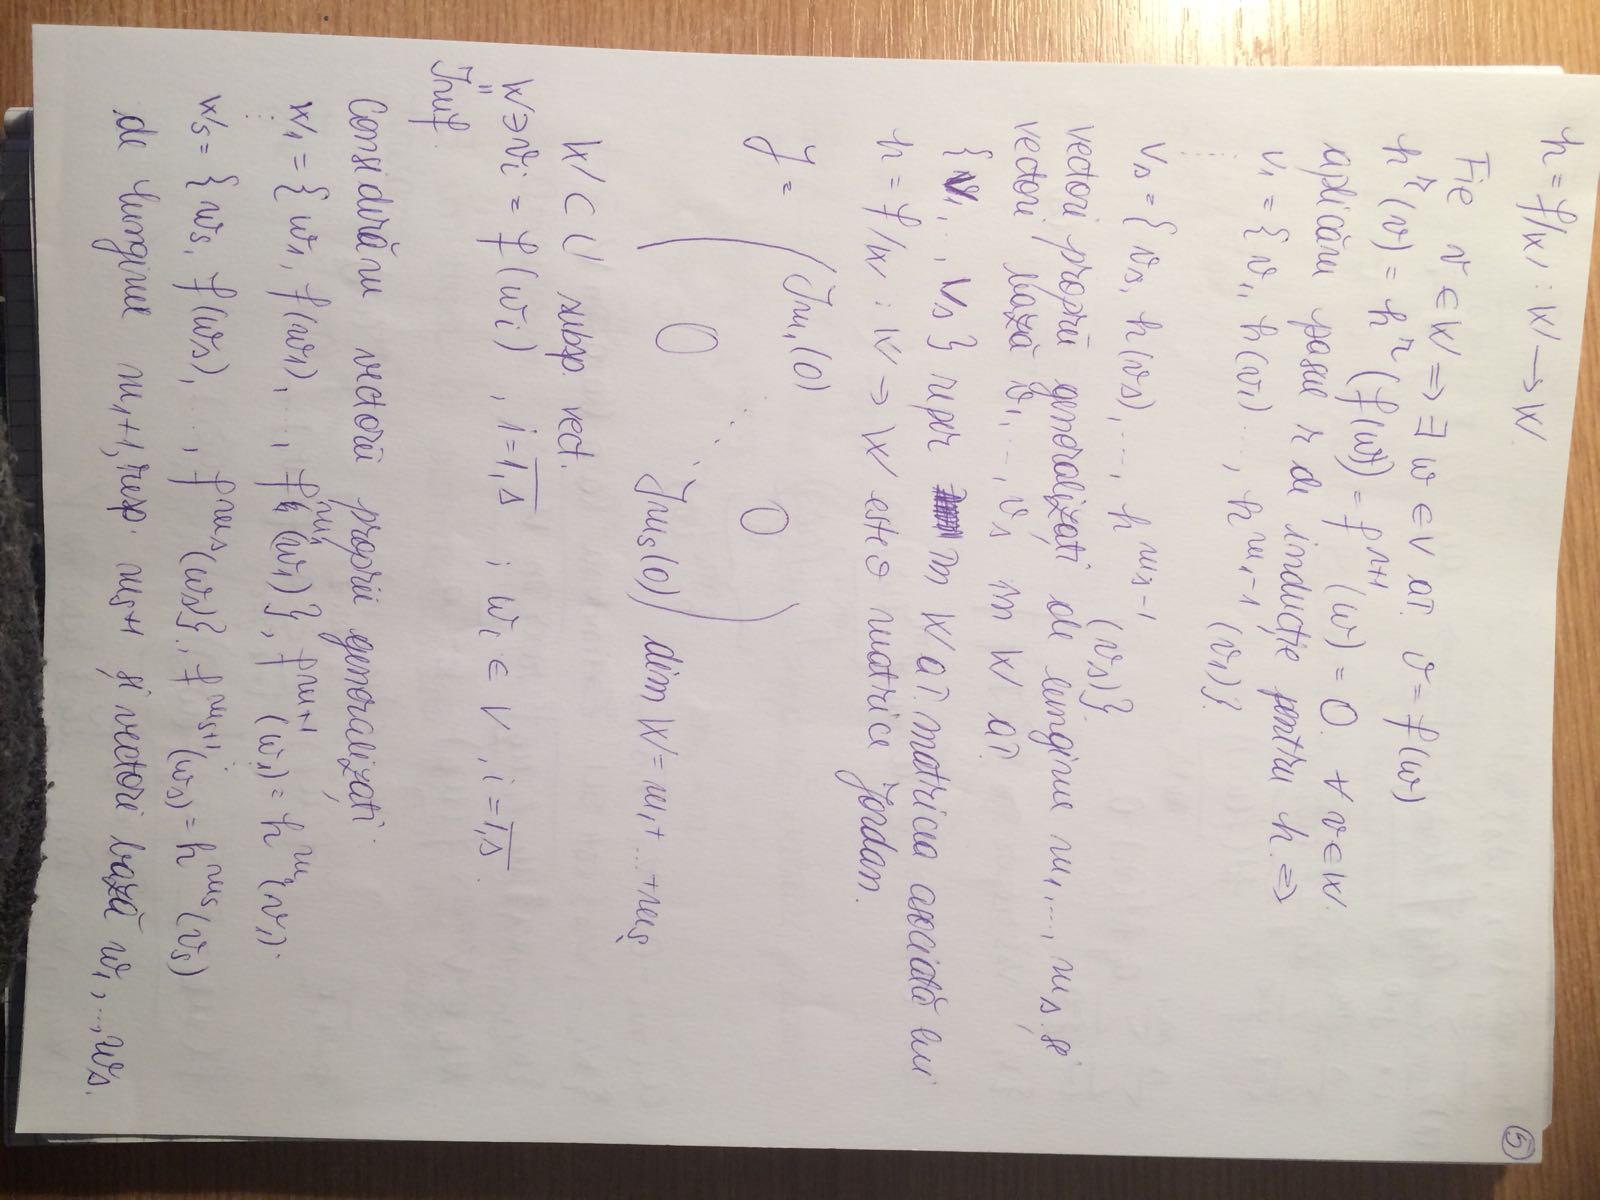 5
h = f/W : W → W.
Fie v ∈ W ⇒ ∃ w ∈ V aî. v = f(w)
h^r(v) = h^r(f(w)) = f^{r+1}(w) = 0. ∀ v ∈ W.
aplicăm pasul r de inducție pentru h ⇒
V1 = {v1, h(v1) ..., h^{m1-1}(v1)}.
⋮
Vs = {vs, h(vs), ..., h^{ms-1}(vs)}.
vectori proprii generalizați de lungime m1, ..., ms și
vectori bază v1, ..., vs în W aî.
{V1, ..., Vs} reper în W aî matricea asociată lui
h = f/W : W → W este o matrice Jordan.
J = ( Jm1(0) 0
⋱
0 Jms(0) ) dim W = m1 + ... + ms
W ⊂ V subsp. vect.
W ∋ vi = f(wi), i = 1,s ; wi ∈ V, i = 1,s.
"
Imf.
Considerăm vectorii proprii generalizați
W1 = {w1, f(w1), ..., f^{m1}(w1)}, f^{m1+1}(w1) = h^{m1}(v1).
⋮
Ws = {ws, f(ws), ..., f^{ms}(ws)}, f^{ms+1}(ws) = h^{ms}(vs)
de lungime m1+1, resp. ms+1 și vectori bază w1, ..., ws.